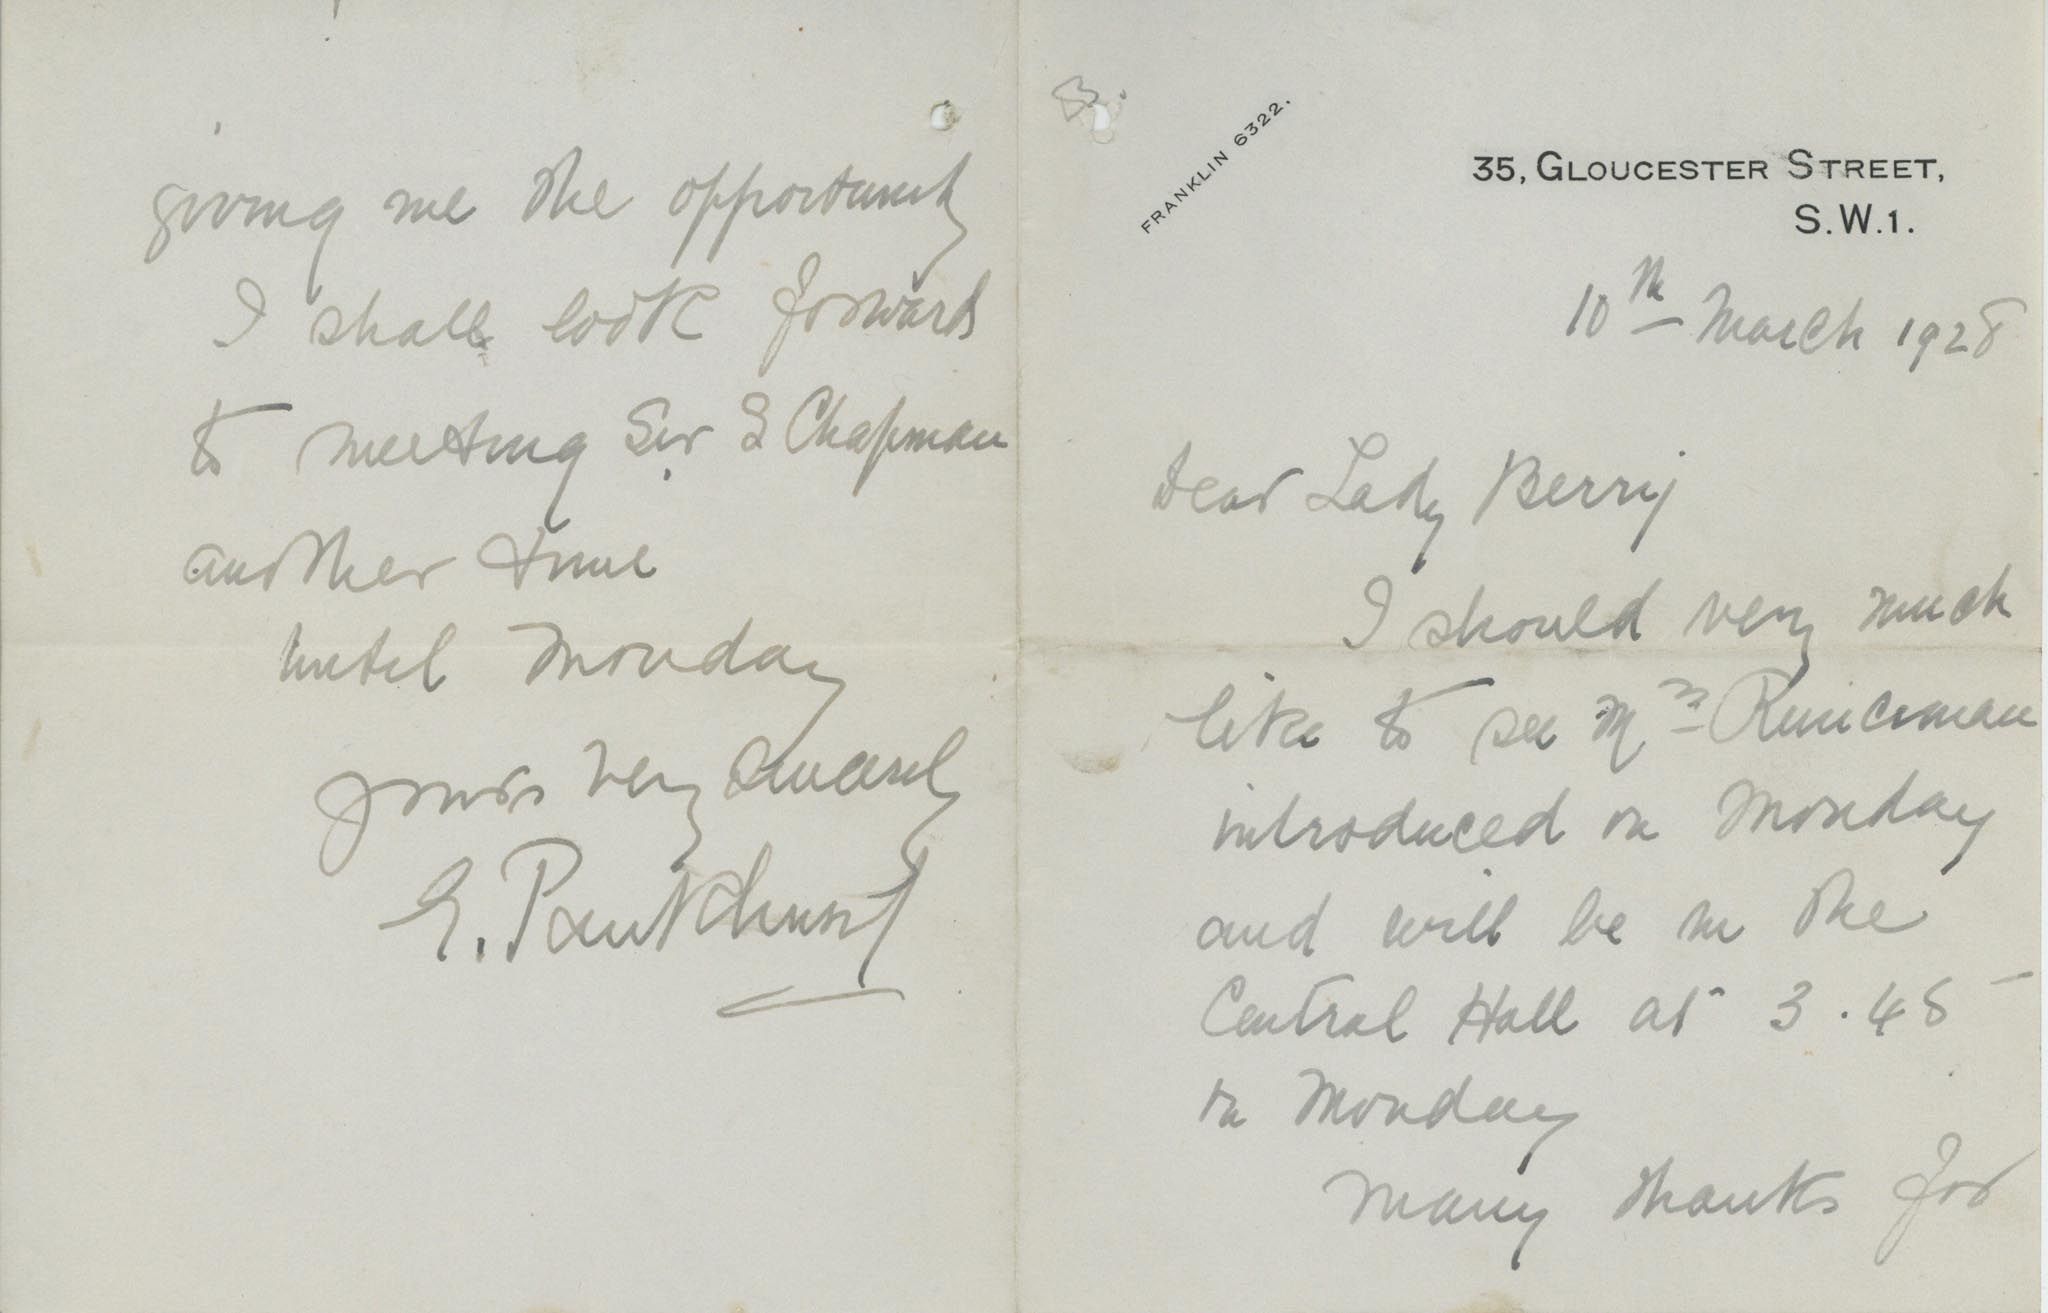 FRANKLIN 6322.
35, GLOUCESTER STREET,
S.W.1.
10th March 1928
Dear Lady Berry
I should very much
like to see Mrs Runciman
introduced on Monday
and will be in the
Central Hall at 3.45
on Monday
Many thanks for
giving me the opportunity
I shall look forward
to meeting Sir S Chapman
another time
Until Monday
yours very sincerely
E. Pankhurst